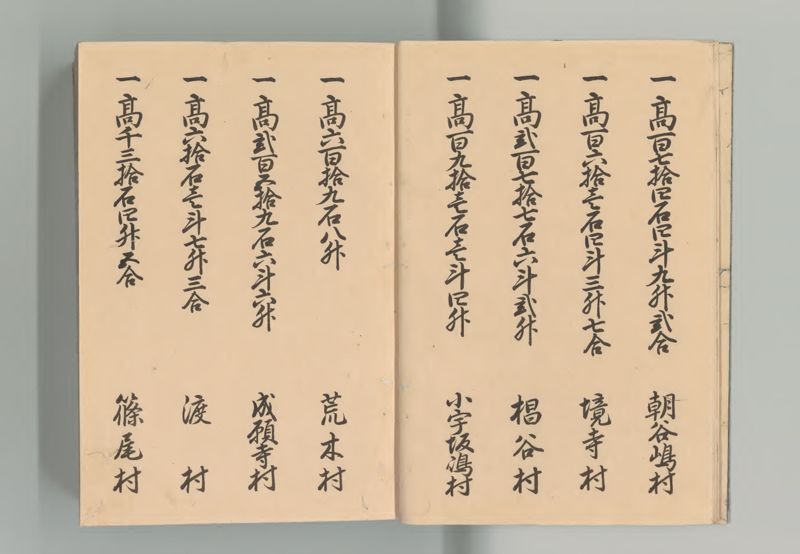 一高百七拾四石四斗九升弐合 朝谷嶋村
一高百六拾壱石四斗三升七合 境寺村
一高弐百七拾七石六斗弐升 椙谷村
一高百九拾壱石壱斗四升 小宇坂嶋村
一高六百拾九石八升 荒木村
一高弐百五拾九石六斗六升 成願寺村
一高六拾石壱斗七升三合 渡村
一高千三拾石四升五合 篠尾村